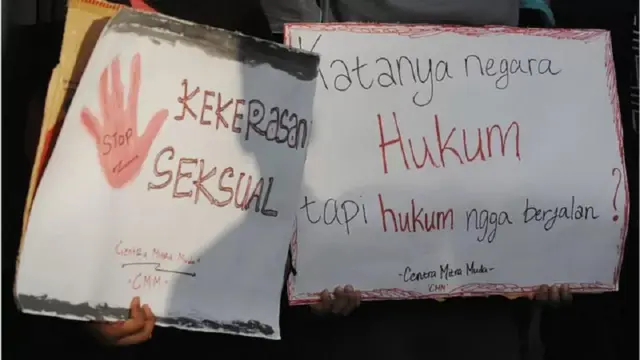 STOP
KEKERASAN
SEKSUAL
Centra Mitra Muda
-CMM-
Katanya negara
Hukum
tapi hukum ngga berjalan ?
-Centra Mitra Muda-
CMM